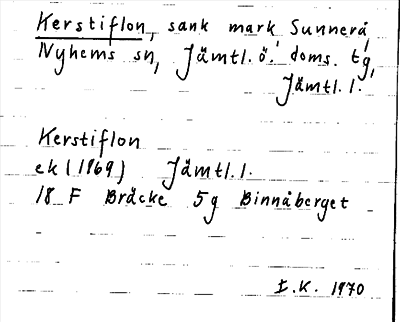 Kerstiflon, sank mark Sunnerå,
Nyhems sn, Jämtl. ö. doms. tg,
Jämtl. l.
Kerstiflon
ek (1969) Jämtl. l.
18 F Bräcke 5g Binnåberget
I.K. 1970